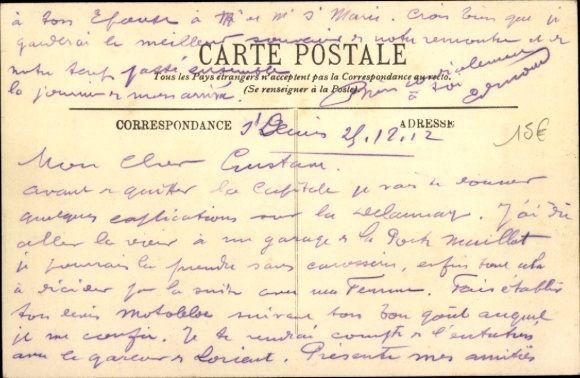 à ton Epouse à Mr et Me St Marie. Crois bien que je
garderai le meilleur souvenir de notre rencontre et de
CARTE POSTALE
notre temps passé ensemble
Tous les Pays étrangers n'acceptent pas la Correspondance au recto.
(Se renseigner à la Poste).
la journée de mon arrivée. Bien cordialement
à toi
Edmond
CORRESPONDANCE
ADRESSE
St Denis 25.12.12
15€
Mon Cher Gustave.
avant de quitter la Capitale je vais te donner
quelques explications sur la Delaunay. J'ai dû
aller la voir à un garage de la Porte Maillot
je pourrais la prendre sans carosserie, enfin tout cela
à décider par la suite avec ma Femme. Fais établir
ton devis Motobloc suivant ton bon goût auquel
je me confie. Je te rendrai compte de l'entretien
avec le garçon de Lorient. Présente mes amitiés